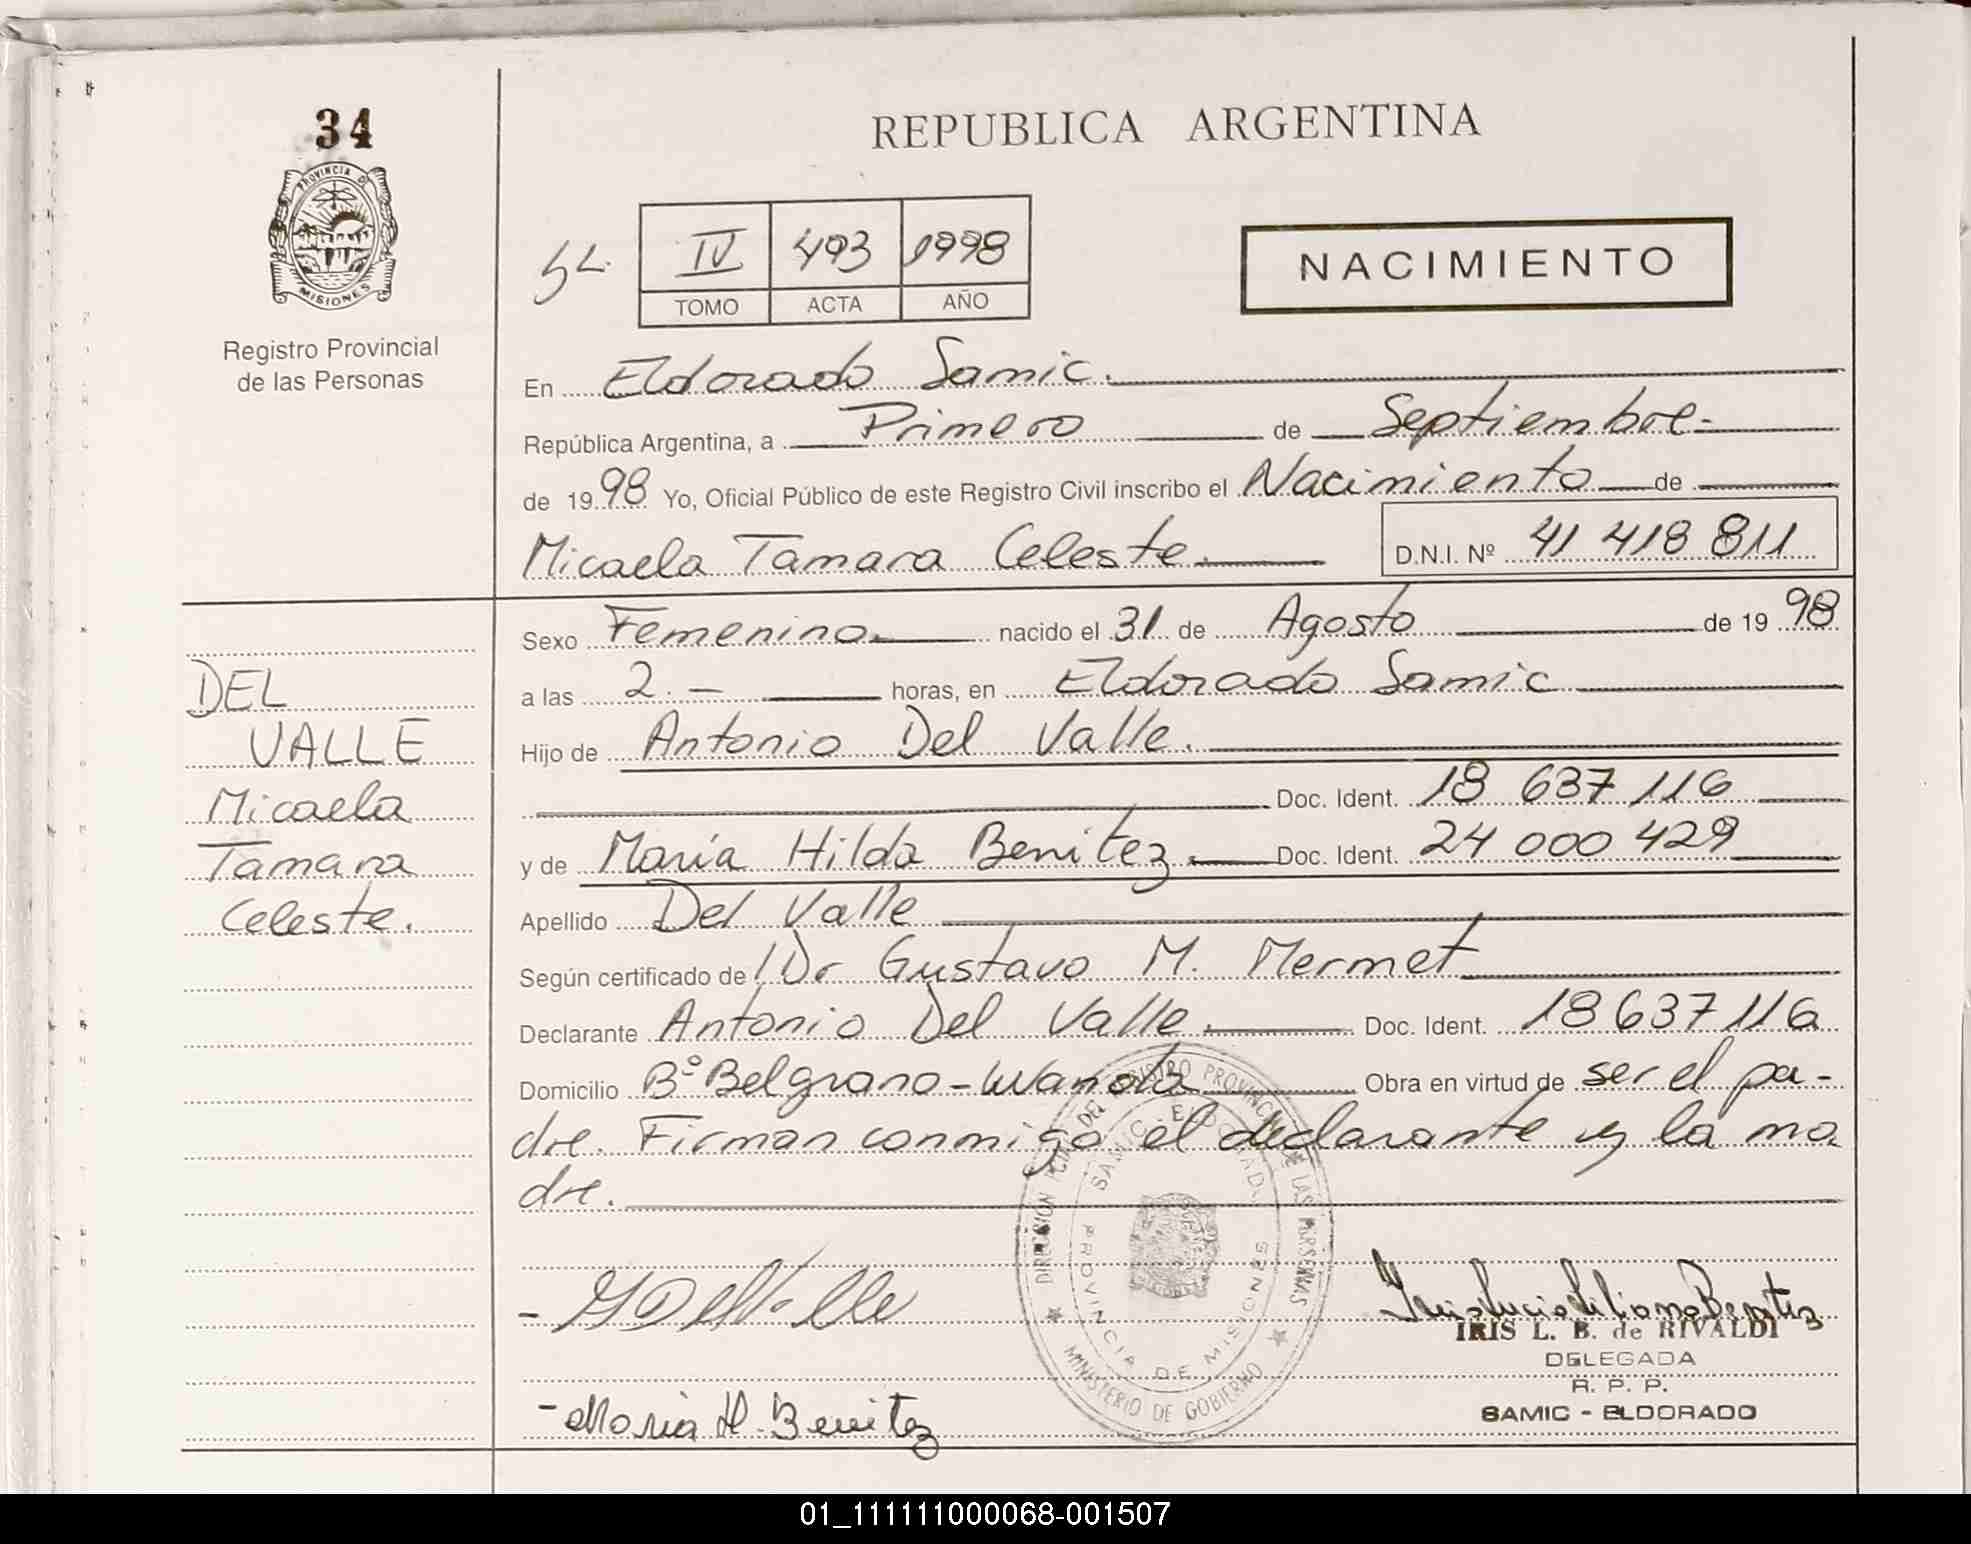 34
PROVINCIA D
MISIONES
Registro Provincial
de las Personas
REPUBLICA ARGENTINA
IV 493 1998
TOMO ACTA AÑO
NACIMIENTO
En Eldorado Samic.
República Argentina, a Primero de Septiembre-
de 1998 Yo, Oficial Público de este Registro Civil inscribo el Nacimiento de
Micaela Tamara Celeste. D.N.I. Nº 41 418 811
Sexo Femenino nacido el 31 de Agosto de 1998
a las 2.- horas, en Eldorado Samic
Hijo de Antonio Del Valle.
Doc. Ident. 18 637 116
y de María Hilda Benitez. Doc. Ident. 24 000 429
Apellido Del Valle
Según certificado de Dr Gustavo M. Mermet
Declarante Antonio Del Valle. Doc. Ident. 18 637 116
Domicilio Bº Belgrano - Wanda Obra en virtud de ser el pa-
dre. Firman conmigo el declarante y la ma
dre.
DEL
VALLE
Micaela
Tamara
Celeste.
DIRECCION DEL REGISTRO PROVINCIAL DE LAS PERSONAS
SAMIC - ELDORADO
PROVINCIA DE MISIONES
MINISTERIO DE GOBIERNO
- Maria H. Benitez
IRIS L. B. de RIVALDI
DELEGADA
R. P. P.
SAMIC - ELDORADO
01_111111000068-001507